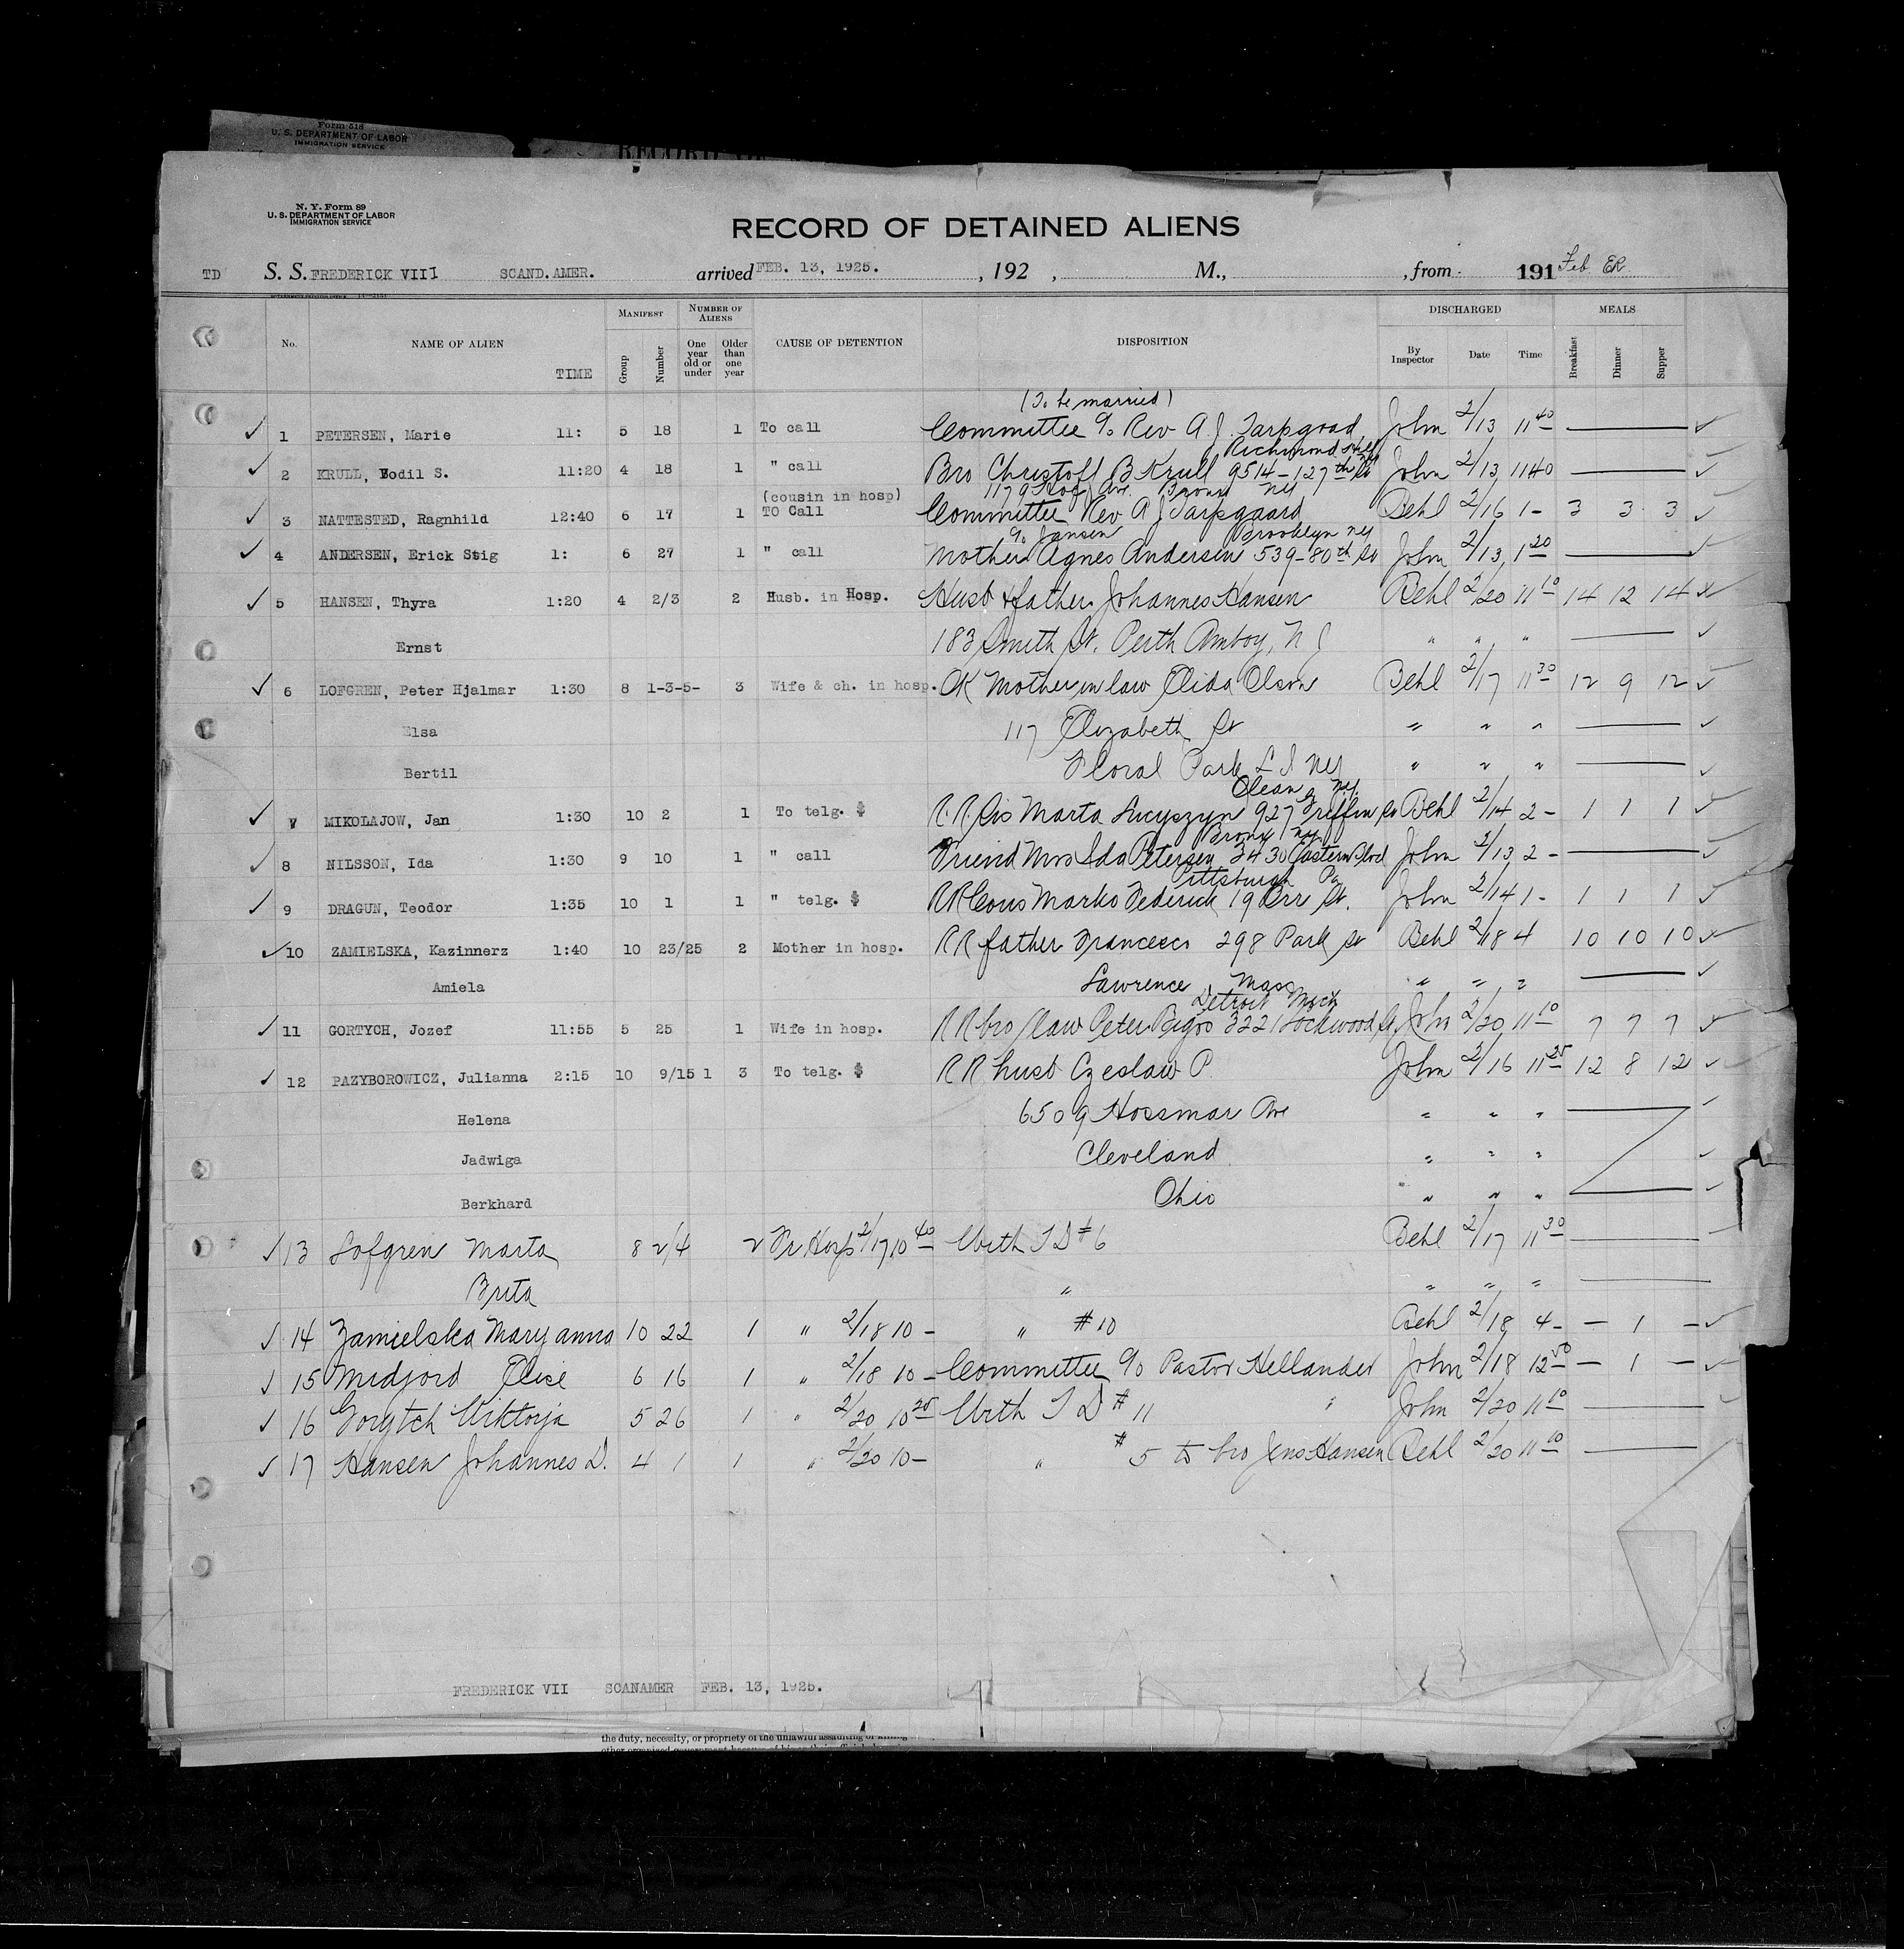 Form 518
U. S. DEPARTMENT OF LABOR
IMMIGRATION SERVICE
N. Y. Form 89
U. S. DEPARTMENT OF LABOR
IMMIGRATION SERVICE
RECORD OF DETAINED ALIENS
TD S. S. FREDERICK VIII SCAND. AMER. arrived FEB. 13, 1925. , 192 , M., , from 191 Feb ER
No. NAME OF ALIEN TIME MANIFEST Group Number NUMBER OF ALIENS One year old or under Older than one year CAUSE OF DETENTION DISPOSITION DISCHARGED By Inspector Date Time MEALS Breakfast Dinner Supper
(To be married)
1 PETERSEN, Marie 11: 5 18 1 To call Committee c/o Rev A J Tarpgaard John 2/13 11 40
Richmond Hill NY
2 KRULL, Bodil S. 11:20 4 18 1 " call Bro Christoff B Krull 9514-127th St John 2/13 1140
(cousin in hosp) 1179 Hoe Ave. Bronx NY
3 NATTESTED, Ragnhild 12:40 6 17 1 TO Call Committee Rev A J Tarpgaard Behl 2/16 1- 3 3 3
c/o Jansen Brooklyn NY
4 ANDERSEN, Erick Stig 1: 6 27 1 " call Mother Agnes Andersen 539-80th St John 2/13 1 20
5 HANSEN, Thyra 1:20 4 2/3 2 Husb. in Hosp. Husb & father Johannes Hansen Behl 2/20 11 10 14 12 14
Ernst 183 Smith St. Perth Amboy, N J " " "
6 LOFGREN, Peter Hjalmar 1:30 8 1-3-5- 3 Wife & ch. in hosp. OK Mother in law Elida Olson Behl 2/17 11 30 12 9 12
Elsa 117 Elizabeth St " " "
Bertil Floral Park L I NY " " "
Olean NY.
7 MIKOLAJOW, Jan 1:30 10 2 1 To telg. $ R.R. Sis Marta Lucyszyn 927 Griffin St Behl 2/14 2- 1 1 1
Bronx NY
8 NILSSON, Ida 1:30 9 10 1 " call Friend Mrs Ida Petersen 3430 Eastern Blvd John 2/13 2-
Pittsburgh Pa
9 DRAGUN, Teodor 1:35 10 1 1 " telg. $ RR Cous Marko Federick 19 Orr St. John 2/14 1- 1 1 1
10 ZAMIELSKA, Kazinnerz 1:40 10 23/25 2 Mother in hosp. RR father Francesco 298 Park St Behl 2/18 4 10 10 10
Amiela Lawrence, Mass " " "
Detroit Mich
11 GORTYCH, Jozef 11:55 5 25 1 Wife in hosp. RR bro / law Peter 3221 Lockwood St John 2/20 11 10 7 7 7
12 PAZYBOROWICZ, Julianna 2:15 10 9/15 1 3 To telg. $ RR husb Czeslaw P John 2/16 11 25 12 8 12
Helena 6509 Hossmar Ave " " "
Jadwiga Cleveland " " "
Berkhard Ohio " " "
13 Lofgren Marta 8 2/4 2 Fr Hosp 2/17 10 40 With T D #6 Behl 2/17 11 30
Brita " " " "
14 Zamielska Maryanna 10 22 1 " 2/18 10- " #10 Behl 2/18 4- - 1 -
15 Midjord Elise 6 16 1 " 2/18 10- Committee c/o Pastor Hellander John 2/18 12 50 - 1 -
16 Gorytch Wiktorja 5 26 1 " 2/20 10 25 With T D #11 " John 2/20 11 10
17 Hansen Johannes D. 4 1 1 " 2/20 10- " #5 to bro Jens Hansen Behl 2/20 11 10
FREDERICK VII SCANAMER FEB. 13, 1925.
the duty, necessity, or propriety of the unlawful assaulting or killing